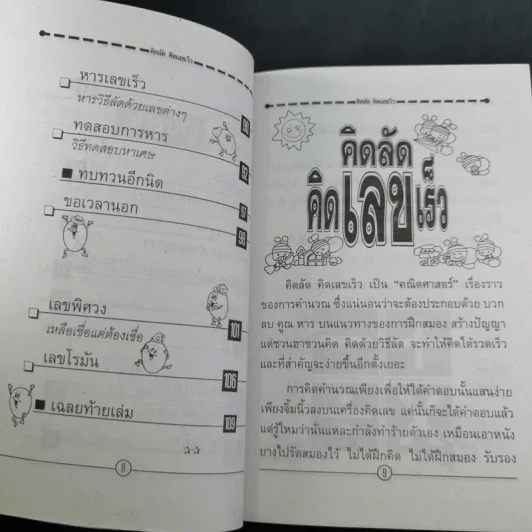 คิดลัด คิดเลขเร็ว
หารเลขเร็ว
หารวิธีลัดด้วยเลขต่างๆ
90
ทดสอบการหาร
วิธีทดสอบหาเศษ
92
ทบทวนอีกนิด
97
ขอเวลานอก
98
เลขพิศวง
เหลือเชื่อแต่ต้องเชื่อ
101
เลขโรมัน
106
เฉลยท้ายเล่ม
109
8
คิดลัด คิดเลขเร็ว
คิดลัด
คิดเลขเร็ว
คิดลัด คิดเลขเร็ว เป็น "คณิตศาสตร์" เรื่องราว
ของการคำนวณ ซึ่งแน่นอนว่าจะต้องประกอบด้วย บวก
ลบ คูณ หาร บนแนวทางของการฝึกสมอง สร้างปัญญา
แต่ชวนฮาชวนคิด คิดด้วยวิธีลัด จะทำให้คิดได้รวดเร็ว
และที่สำคัญจะง่ายขึ้นอีกตั้งเยอะ
การคิดคำนวณเพียงเพื่อให้ได้คำตอบนั้นแสนง่าย
เพียงจิ้มนิ้วลงบนเครื่องคิดเลข แค่นั้นก็จะได้คำตอบแล้ว
แต่รู้ไหมว่านั่นแหละกำลังทำร้ายตัวเอง เหมือนเอาหนัง
ยางไปรัดสมองไว้ ไม่ได้ฝึกคิด ไม่ได้ฝึกสมอง รับรอง
9